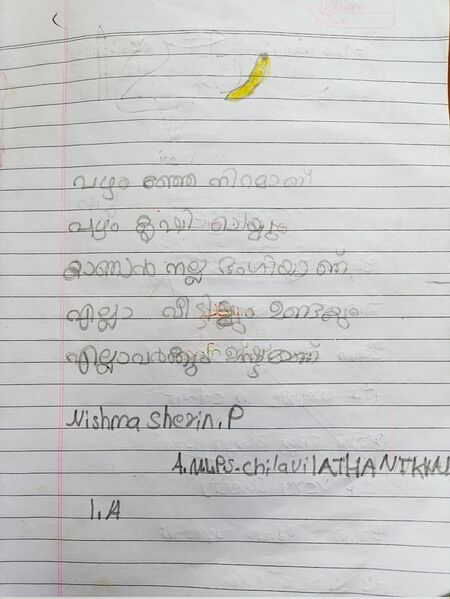 പഴം മഞ്ഞ നിറമാണ്
പഴം കൃഷി ചെയ്യും
കാണാൻ നല്ല ഭംഗിയാണ്
എല്ലാ വീട്ടിലും ഉണ്ടാകും
എല്ലാവർക്കും ഇഷ്ടമാണ്
Nishma Sherin.P
A.MLPS-chilavil ATHANIKKAL
1.A